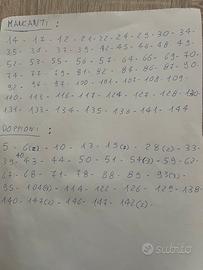 MANCANTI :
14 - 17 - 12 - 21 - 22 - 24 - 29 - 30 - 34 -
35 - 37 - 39 - 42 - 45 - 46 - 48 - 49 -
52 - 53 - 55 - 56 - 57 - 64 - 66 - 69 - 70 -
74 - 77 - 79 - 81 - 82 - 86 - 87 - 90
92 - 96 - 97 - 100 - 107 - 108 - 109 -
110 - 116 - 117 - 124 - 127 - 128 - 130
131 - 133 - 134 - 135 - 138 - 141 - 144
DOPPIONI :
5 - 6(2) - 10 - 13 - 19(2) - 28(2) - 33 -
39 - 40 - 43 - 44 - 50 - 51 - 54(2) - 59 - 62
67 - 68 - 71 - 78 - 88 - 89 - 93(2) -
95 - 104(2) - 114 - 122 - 126 - 129 - 138
140 - 143(2) - 146 - 147 - 142(2) -
subito